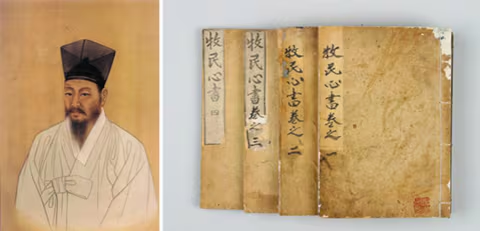 牧民心書卷之一
牧民心書卷之二
牧民心書卷之三
牧民心書 四